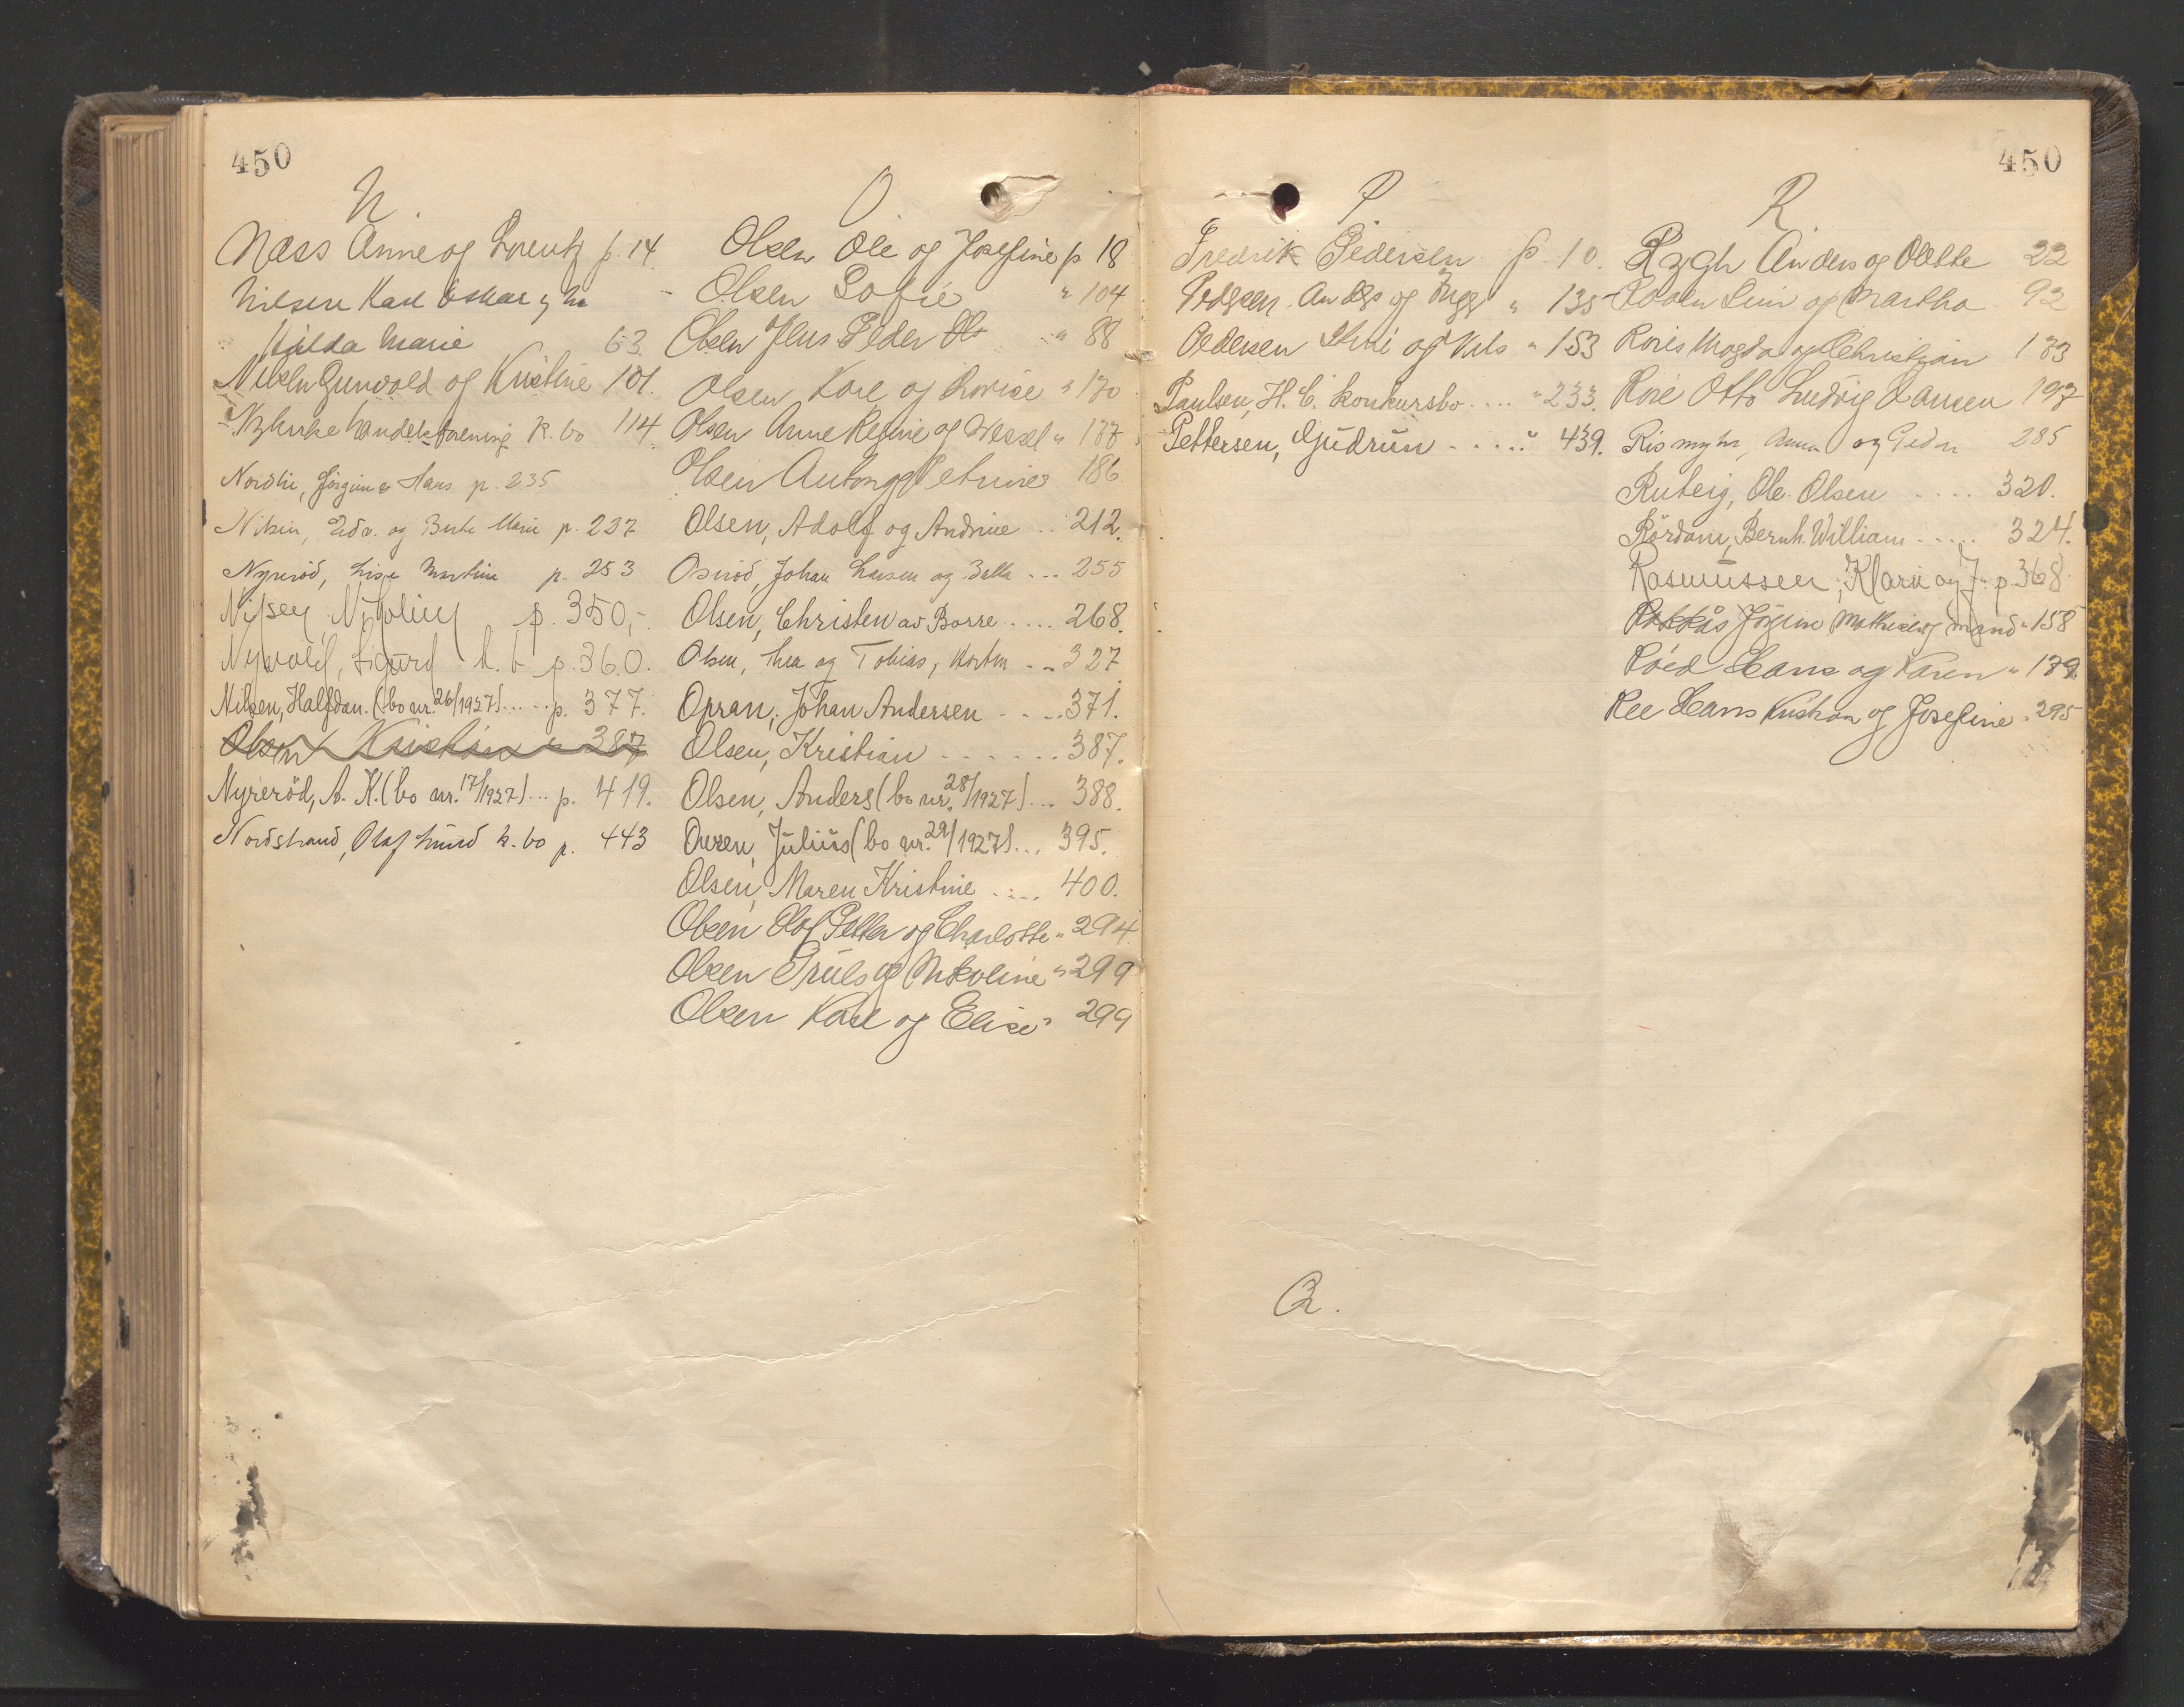 450
N.
Næss Anne og Lorentz p. 14.
Nilsen Karl Oskar og
Hilda Marie 63.
Nilsen Gunvald og Kristine 101.
Handelsforening K. bo 114.
Nordli, Jørgine & Hans p. 235
Nilsen, Edv. og Berte Marie p. 237
Nyrerød, Lise Martine p. 253
Nilsen p. 350,-
Nyvold, Sigurd k. b. p. 360.
Nilsen, Halfdan. (bo nr. 26/1927)..... p. 377.
Olsen Kristian " 387
Nyrerød, A. K. (bo nr. 17/1927)... p. 419.
Nordstrand, Olaf Lund k. bo p. 443
O.
Olsen Ole og Josefine p 18
Olsen Sofie " 104
Olsen Jens Peder " 88
Olsen Karl og Lovise " 170
Olsen Anne Regine og Wessel " 177
Olsen Anton og Petrine " 186
Olsen, Adolf og Andrine .. 212.
Osnød, Johan Larsen og Balla ... 255
Olsen, Christen av Borre ..... 268.
Olsen, Thea og Tobias, Horten ... 327
Opran, Johan Andersen ..... 371.
Olsen, Kristian ....... 387.
Olsen, Anders (bo nr. 28/1927)... 388.
Ovren, Julius (bo nr. 29/1927)... 395.
Olsen, Maren Kristine ..... 400.
Olsen Olof Petter og Charlotte " 294.
Olsen Truls og Nikoline " 299
Olsen Karl og Elise " 299
450
P
Fredrik Pedersen p. 10.
Pedersen Anders og Inga " 135
Pedersen Thni og Nils " 153
Paulsen, H. C. konkursbo .... " 233.
Pettersen, Gudrun ..... " 439.
Q.
R
Rygh Anders og Olette 22
og Martha 92
Magda og Christian 173
Roré Otto Ludvig Hansen 197
Rismyhr, Anna og Peder 285
Ruteig, Ole Olsen .... 320.
Rördam, Bernh. William ..... 324.
Rasmussen, Klara og J. p. 368.
Jörgine Mathisen og mand " 158
Röed Hans og Karen " 179
Ree Hans Kristian og Josefine " 295